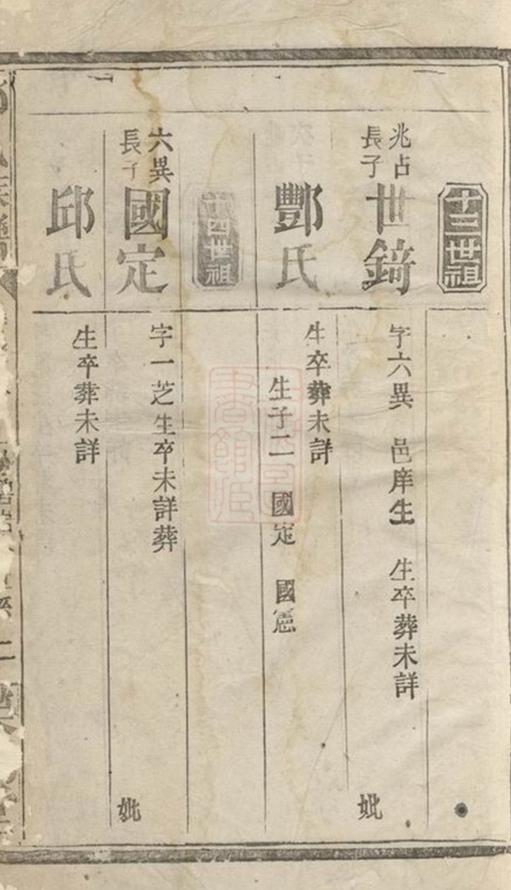 十三世祖
兆占長子 世錡
字六異 邑庠生 生卒葬未詳 妣
酆氏
生卒葬未詳
生子二 國定 國憲
十四世祖
六異長子 國定
字一芝生卒未詳葬 妣
邱氏
生卒葬未詳